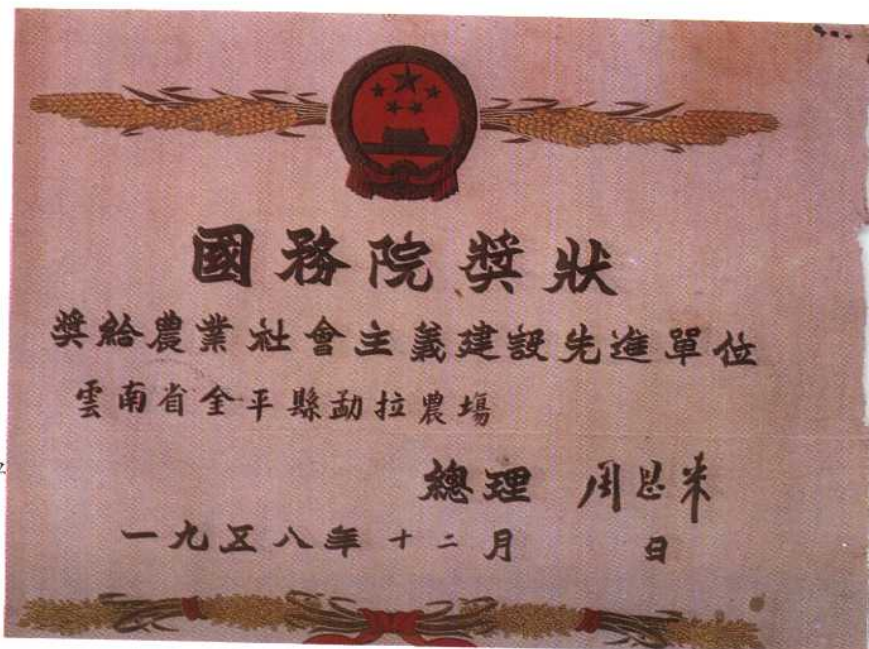 國務院獎狀
獎給農業社會主義建設先進單位
雲南省金平縣勐拉農場
總理 周恩来
一九五八年十二月 日